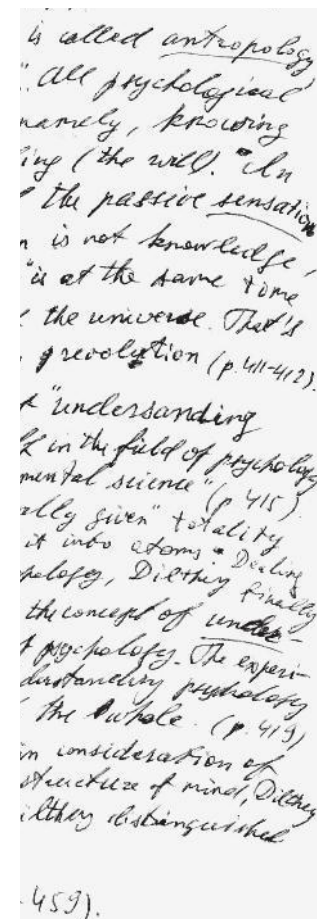 is called antropology
". All psychological
namely, knowing
ing (the will). "In
the passive sensation
is not knowledge,
"is at the same time
the universe. That's
revolution (p. 411-412).
"undersanding
in the field of psychology
mental science" (p. 415)
ally given" totality
it into atoms. Dealing
pology, Dilthey finally
the concept of under-
psychology. The experi-
derstanding psychology
the whole. (p. 419)
in consideration of
structure of mind, Dilthey
ilthey distinguished
-459).